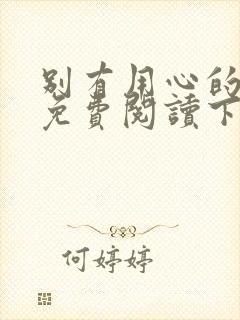 别有用心的
免費閱讀下
何婷婷